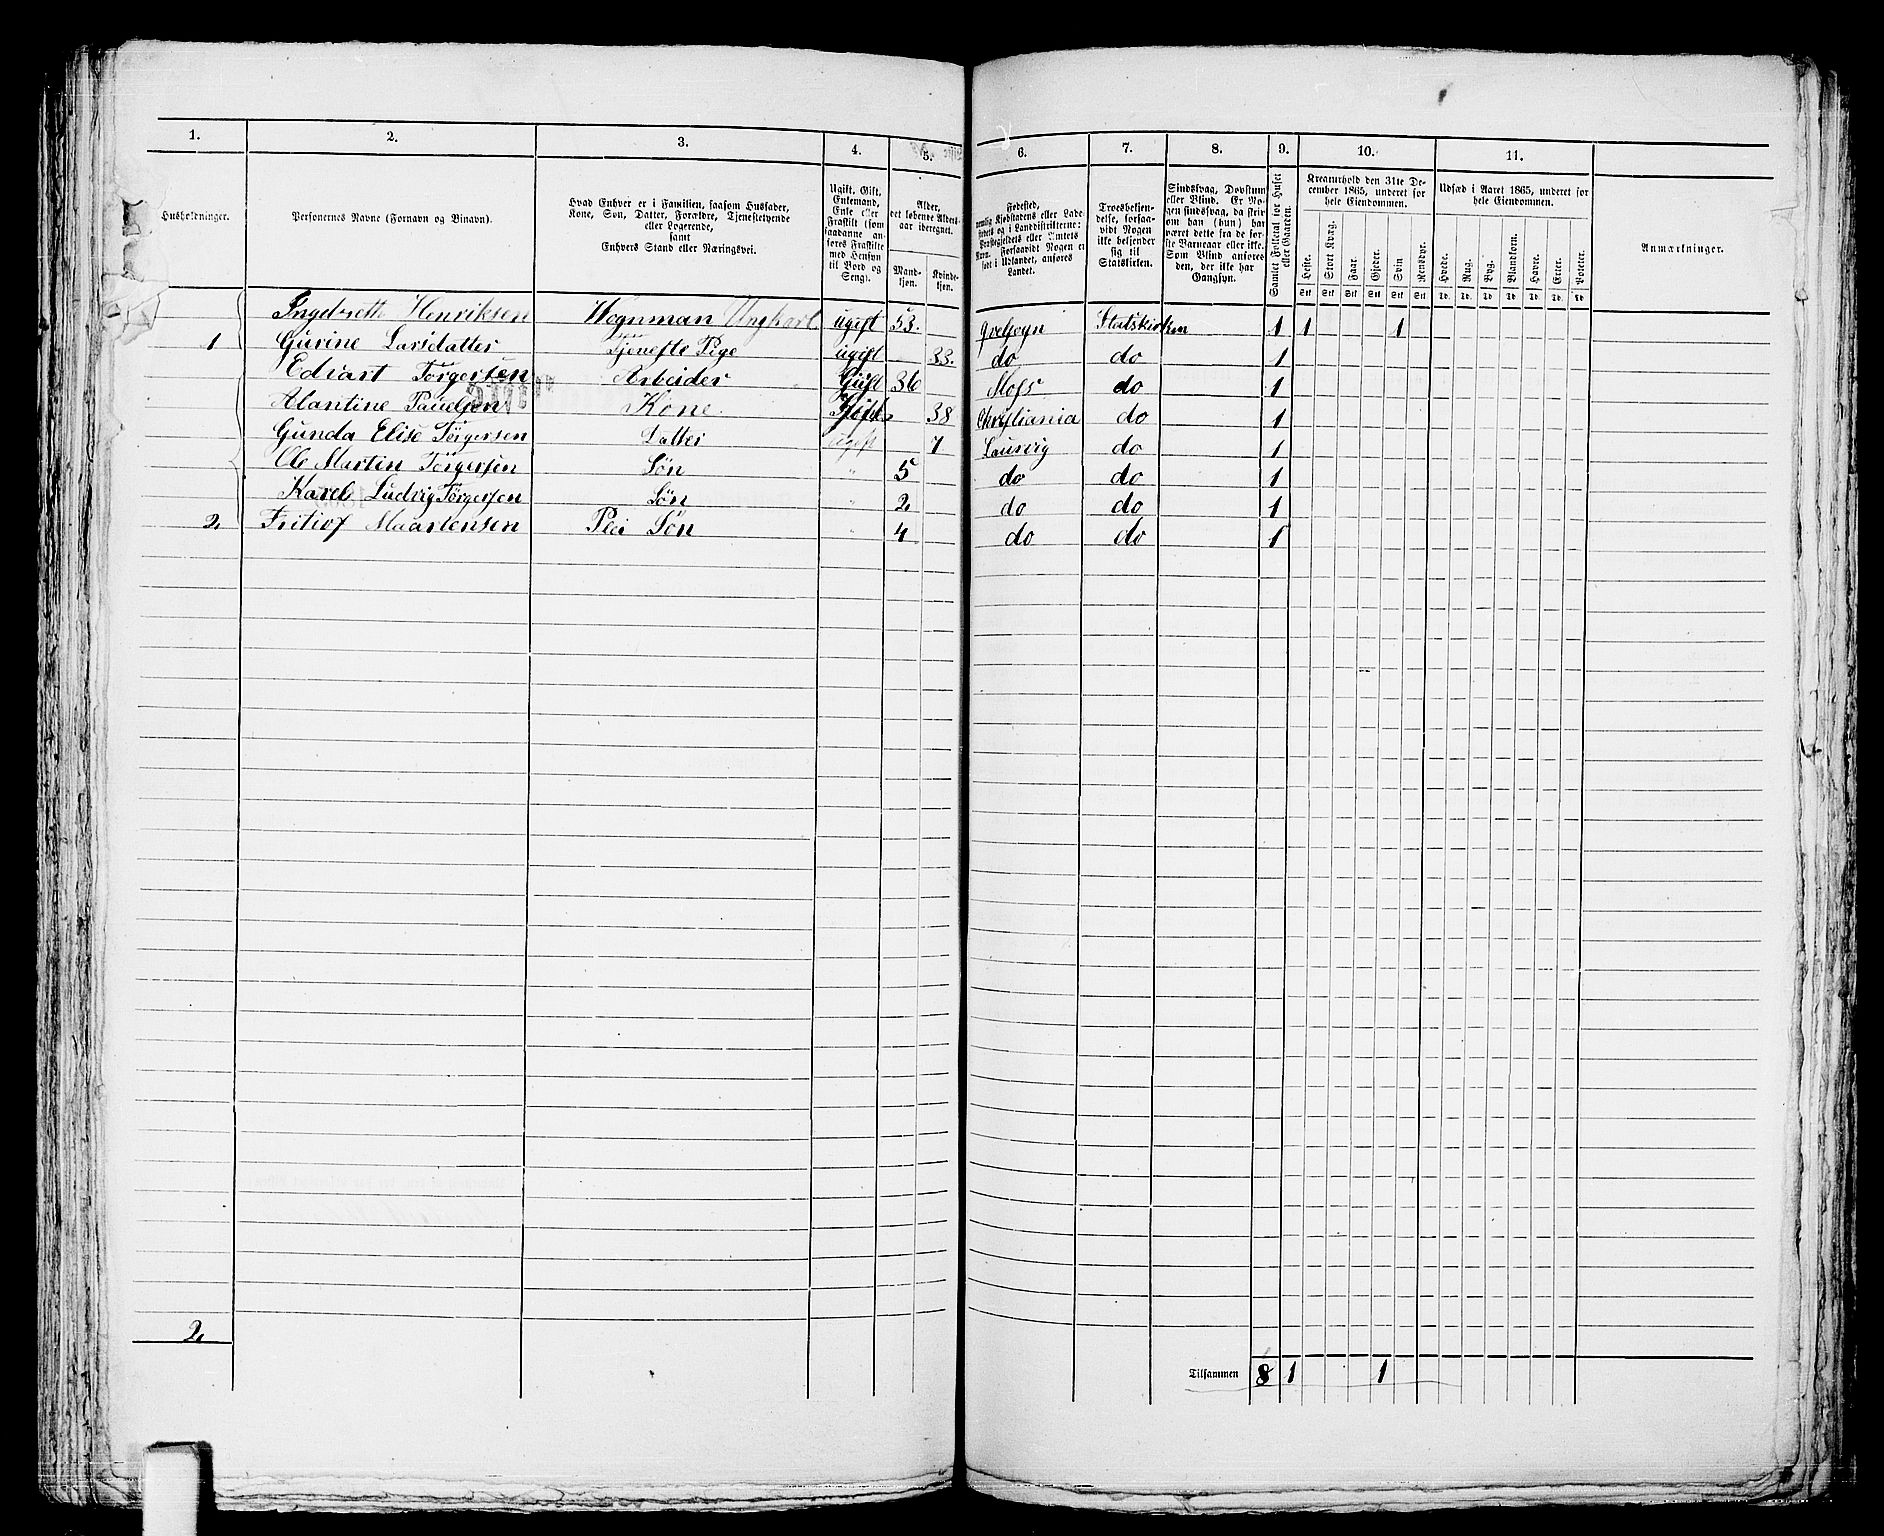 1. 2. 3. 4. 5. 6. 7. 8. 9. 10. 11.
Husholdninger.
Personernes Navne (Fornavn og Binavn).
Hvad Enhver er i Familien, saasom Husfader,
Kone, Søn, Datter, Forældre, Tjenestetyende
eller Logerende,
samt
Enhvers Stand eller Næringsvei.
Ugift, Gift,
Enkemand,
Enke eller
Fraskilt (som
saadanne an-
føres Fraskilte
med Hensyn
til Bord og
Seng).
Alder,
det løbende Alders-
aar iberegnet.
Mand-
kjøn. Kvinde-
kjøn.
Fødested,
nemlig Kjøbstadens eller Lade-
stedets og i Landdistrikterne:
Præstegjeldets eller Amtets
Navn. Forsaavidt Nogen er
født i Udlandet, anføres
Landet.
Troesbekjen-
delse, forsaa-
vidt Nogen
ikke bekjender
sig til
Statskirken.
Sindssvag, Døvstum
eller Blind. Er No-
gen sindssvag, da skri-
ves om han (hun) har
været dette fra de før-
ste Barneaar eller ikke.
Som Blind anføres
den, der ikke har
Gangsyn.
Samlet Folketal for Huset
eller Gaarden.
Kreaturhold den 31te De-
cember 1865, underet for
hele Eiendommen.
Heste. Stort Kvæg. Faar. Gjeder. Svin Rensdyr.
Stk Stk Stk Stk Stk Stk
Udsæd i Aaret 1865, underet for
hele Eiendommen.
Hvede. Rug. Byg. Blandkorn. Havre. Erter. Poteter.
Td. Td. Td. Td. Td. Td. Td
Anmærkninger.
Ingebrett Henriksen Wognman Ungkarl ugift 53. Statskirken 1 1 1
1 Gurine Larsdatter Tjeneste Pige ugift 33. do do 1
Edvart Tørgersen Arbeider Gift 36 Moss do 1
Alantine Pauelsen Kone 38 Christiania do 1
Gunda Elise Tørgersen Datter ugift 7 Laurvig do 1
Ole Martin Tørgersen Søn " 5 do do 1
Karel Ludvig Tørgersen Søn " 2 do do 1
2 Fritiof Maartensen Plei Søn " 4 do do 1
2
Tilsammen 8 1 1